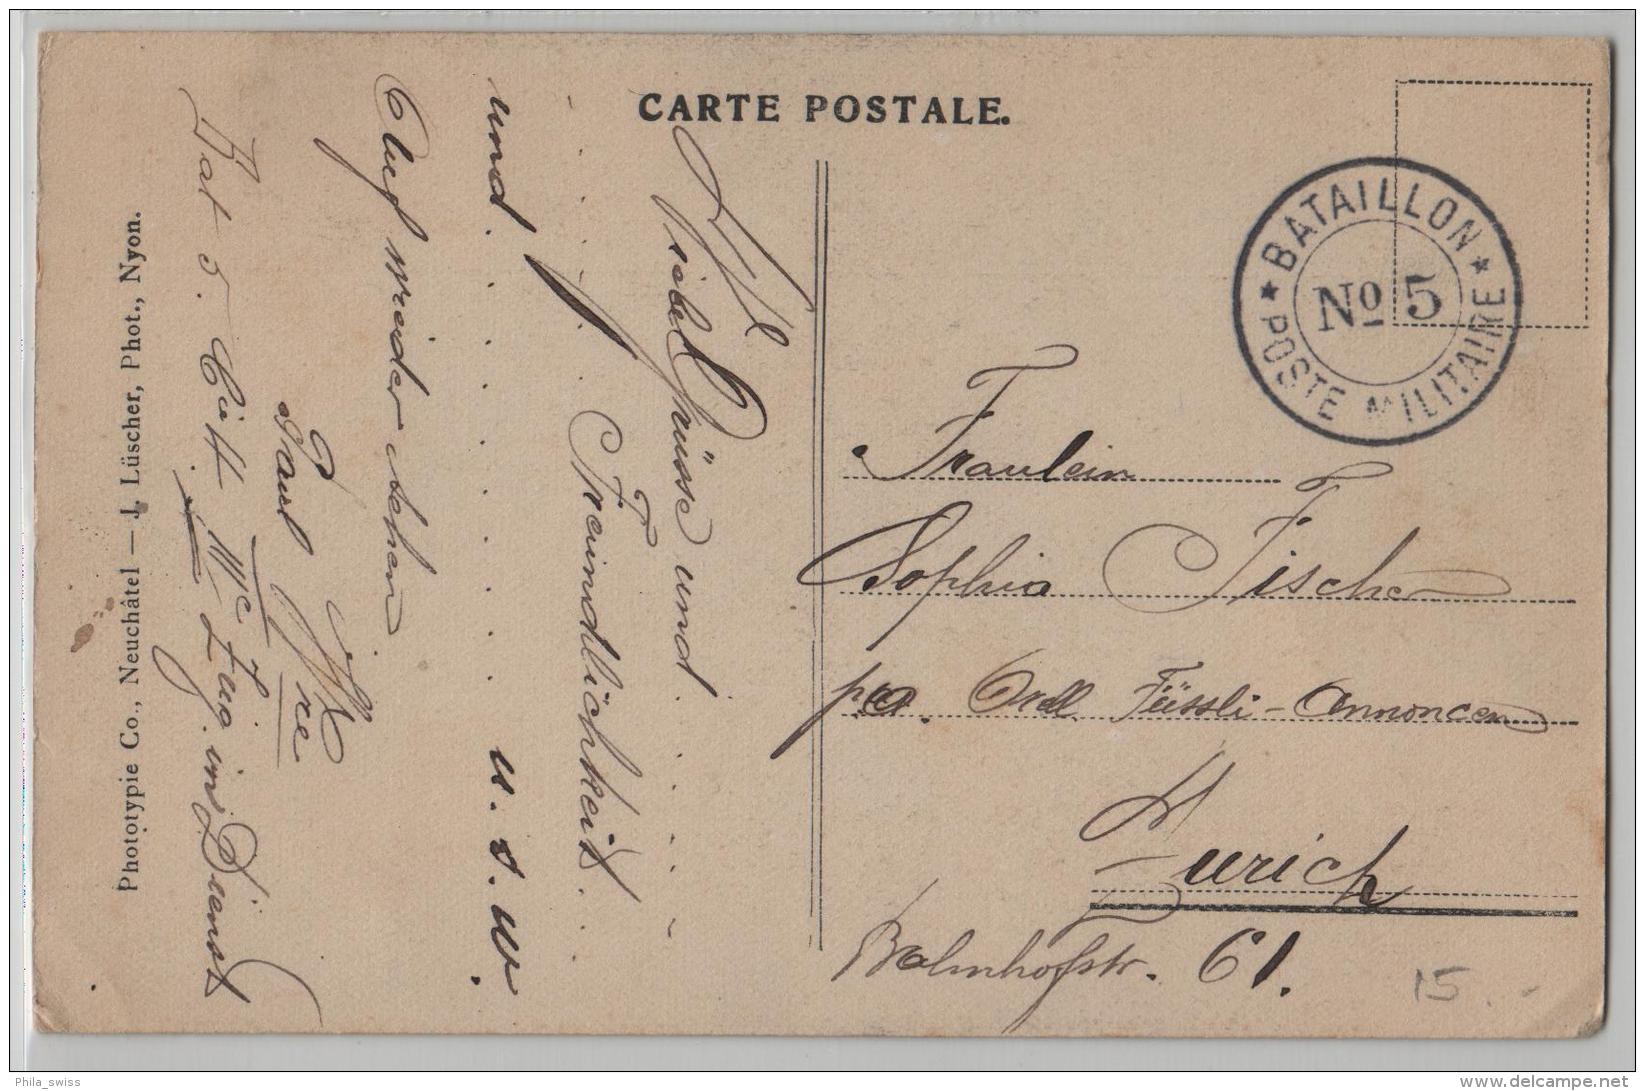 CARTE POSTALE.
BATAILLON
No 5
POSTE MILITAIRE
Fraulein
Sophia Fischer
Orell Füssli-Annoncen
Zurich
Bahnhofstr. 61.
15.-
Grüsse und
Freundlichkeit.
und. u. s. w.
Auf wieder sehen
Paul
Bat 5. IVe Zug. im Dienst
Phototypie Co., Neuchâtel — J. Lüscher, Phot., Nyon.
Phila_swiss
delcampe.net